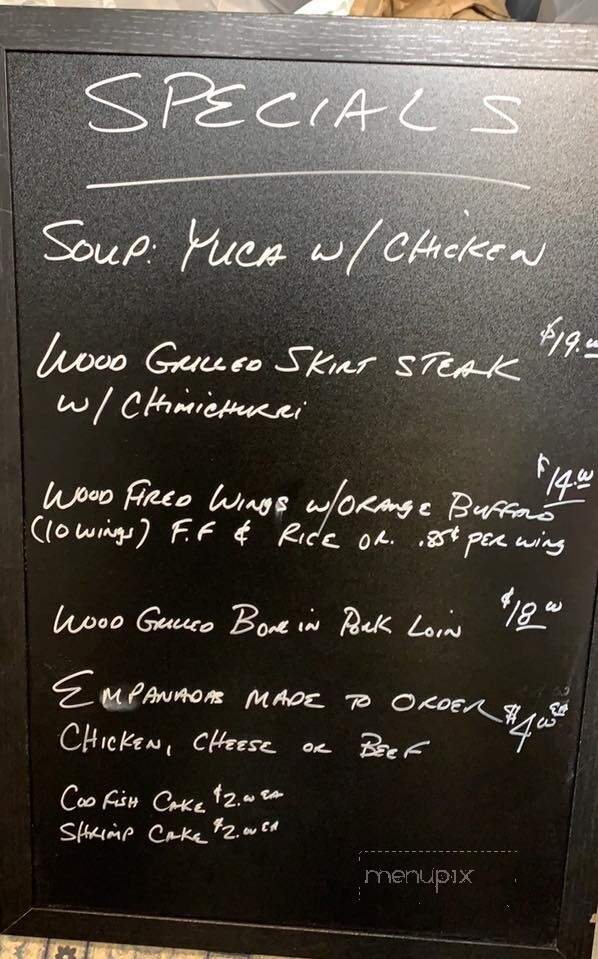 SPECIALS
SOUP: YUCA W/ CHICKEN
$19.00
WOOD GRILLED SKIRT STEAK
W/ CHIMICHURRI
$14.00
WOOD FIRED WINGS W/ORANGE BUFFALO
(10 WINGS) F.F & RICE OR .85¢ PER WING
WOOD GRILLED BONE IN PORK LOIN $18.00
EMPANADAS MADE TO ORDER $4.00 EA
CHICKEN, CHEESE OR BEEF
COD FISH CAKE $2.00 EA
SHRIMP CAKE $2.00 EA
menupix